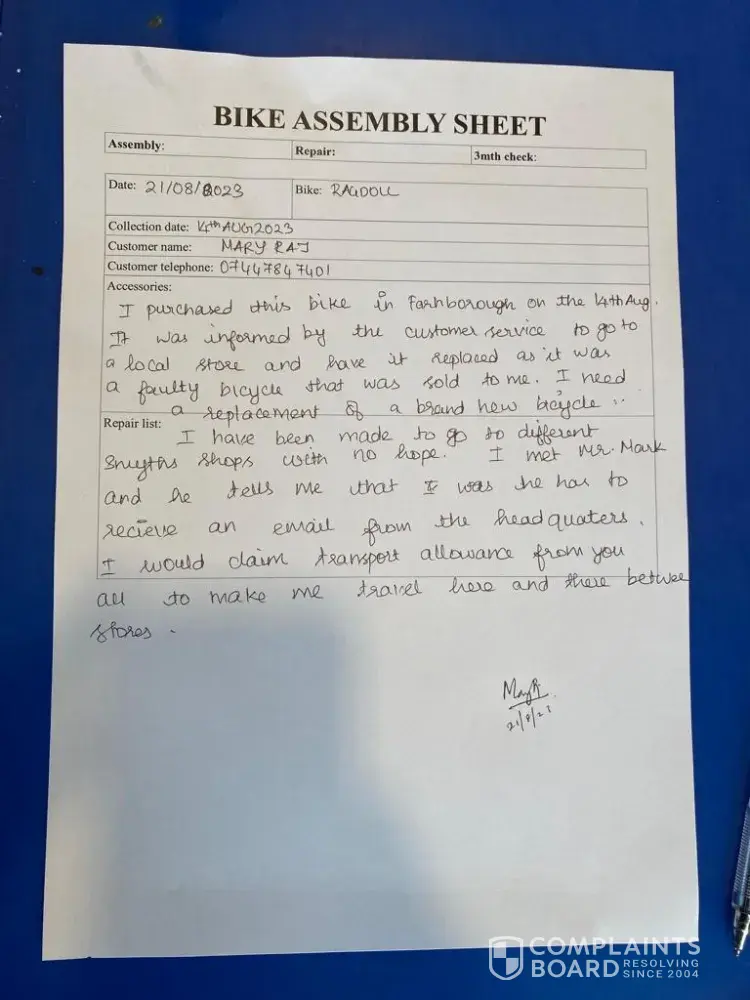 BIKE ASSEMBLY SHEET
Assembly: Repair: 3mth check:
Date: 21/08/2023 Bike: RAGDOLL
Collection date: 14th AUG 2023
Customer name: MARY RAJ
Customer telephone: 07447847401
Accessories:
I purchased this bike in Farnborough on the 14th Aug.
It was informed by the customer service to go to
a local store and have it replaced as it was
a faulty bicycle that was sold to me. I need
a replacement of a brand new bicycle ..
Repair list: I have been made to go to different
Smyths shops with no hope. I met Mr. Mark
and he tells me that I was he has to
recieve an email from the headquaters.
I would claim transport allowance from you
all to make me travel here and there betwee
stores.
MaryR
21/8/23
COMPLAINTS
BOARD RESOLVING
SINCE 2004